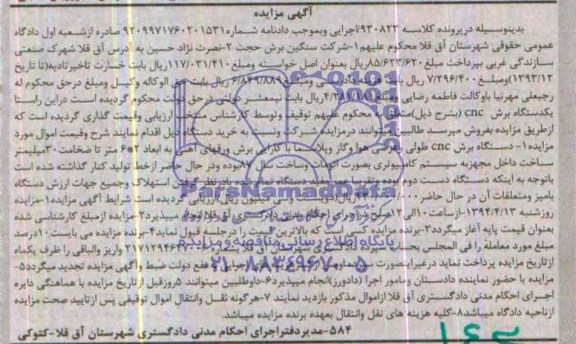 آگهی مزایده
بدینوسیله درپرونده کلاسه ۹۳۰۸۲۳اجرایی وبموجب دادنامه شماره ۹۲۰۹۹۷۱۷۶۰۲۰۱۵۳۱ صادره ازشعبه اول دادگاه
عمومی حقوقی شهرستان آق قلا محکوم علیهم ۱-شرکت سنگین برش حجت ۲-نصرت نژاد حسین به آدرس آق قلا شهرک صنعتی
سازندگی غربی بپرداخت مبلغ ۸۵/۶۲۳/۶۲۰ریال بعنوان اصل خواسته ومبلغ ۱۱۷/۰۳۱/۴۱۰ریال بابت خسارت تاخیرتادیه(تا تاریخ
۱۳۹۳/۱۲)ومبلغ ۷/۲۹۶/۴۰۰ریال بابت دادرسی ومبلغ ۶/۸۴۹/۸۸۹ریال بابت حق الوکاله وکیل ومبلغ درحق محکوم له
رجبعلی مهرنیا باوکالت فاطمه رضایی ومبلغ ریال بابت نیمعشر دولتی درحق دولت محکوم گردیده است دراین راستا
یکدستگاه برش cnc (بشرح ذیل)متعلق به محکوم علیهم توقیف وتوسط کارشناس منتخب ارزیابی وقیمت گذاری گردیده است که
ازطریق مزایده بفروش میرسد طالبین میتوانند درمزایده شرکت ونسبت به خرید دستگاه ذیل اقدام نمایند شرح وقیمت اموال مورد
مزایده ۱- دستگاه برش cnc طولی بفرم هوا وگاز وپلاسما با کارایی برش ورقهای آهنی به ابعاد ۲×۶ متر تا ضخامت ۳۰میلیمتر
ساخت داخل مجهزبه سیستم کامپیوتری بصورت اتومات وساخت سال ۸۷بوده ودر حال حاضر ازخط تولید کنار گذاشته شده است
باتوجه به اینکه دستگاه دست دوم بوده وتقریبا عمر مفید دستگاه نظر گرفتن استهلاک وجمیع جهات ارزش دستگاه
بامیز ومتعلقات آن در حال حاضر ریال(دویست وسی میلیون ریال)ارزیابی گردیده است شرایط آگهی مزایده ۱-مزایده
روزشنبه ۱۳۹۴/۴/۱۳ ازساعت ۱۰الی ۱۲صبح در اجرای احکام مدنی دادگستری آق قلا انجام میپذیرد۲-مزایده ازمبلغ کارشناسی شده
بعنوان قیمت پایه آغاز میگردد۳-برنده مزایده کسی است که بالاترین قیمت را درجلسه قبول نماید۴-برنده مزایده می بایست ۱۰درصد
مبلغ مورد معامله را فی المجلس بحساب سپرده دادگستری شهرستان آق قلا واریز والباقی را ظرف یکماه
ازتاریخ مزایده پرداخت نماید درغیراینصورت نفع دولت ضبط وآگهی مزایده تجدید میگردد۵-
مزایده با حضور نماینده دادستان ومامور اجرا (دادورز)انجام میپذیرد۶-داوطلبین میتوانند ۵روزقبل ازتاریخ مزایده با هماهنگی دایره
اجرای احکام مدنی دادگستری آق قلا ازاموال مذکور بازدید نمایند ۷-هرگونه نقل وانتقال اموال توقیفی پس ازتایید صحت مزایده
ازناحیه دادگاه میباشد۸-کلیه هزینه های نقل وانتقال بعهده برنده مزایده میباشد.
۵۸۴-مدیردفتراجرای احکام مدنی دادگستری شهرستان آق قلا-کتوکی
ParsNamadData
پایگاه اطلاع رسانی مناقصه ومزایده
۰۲۱-۸۸۳۴۹۶۷۰-۵